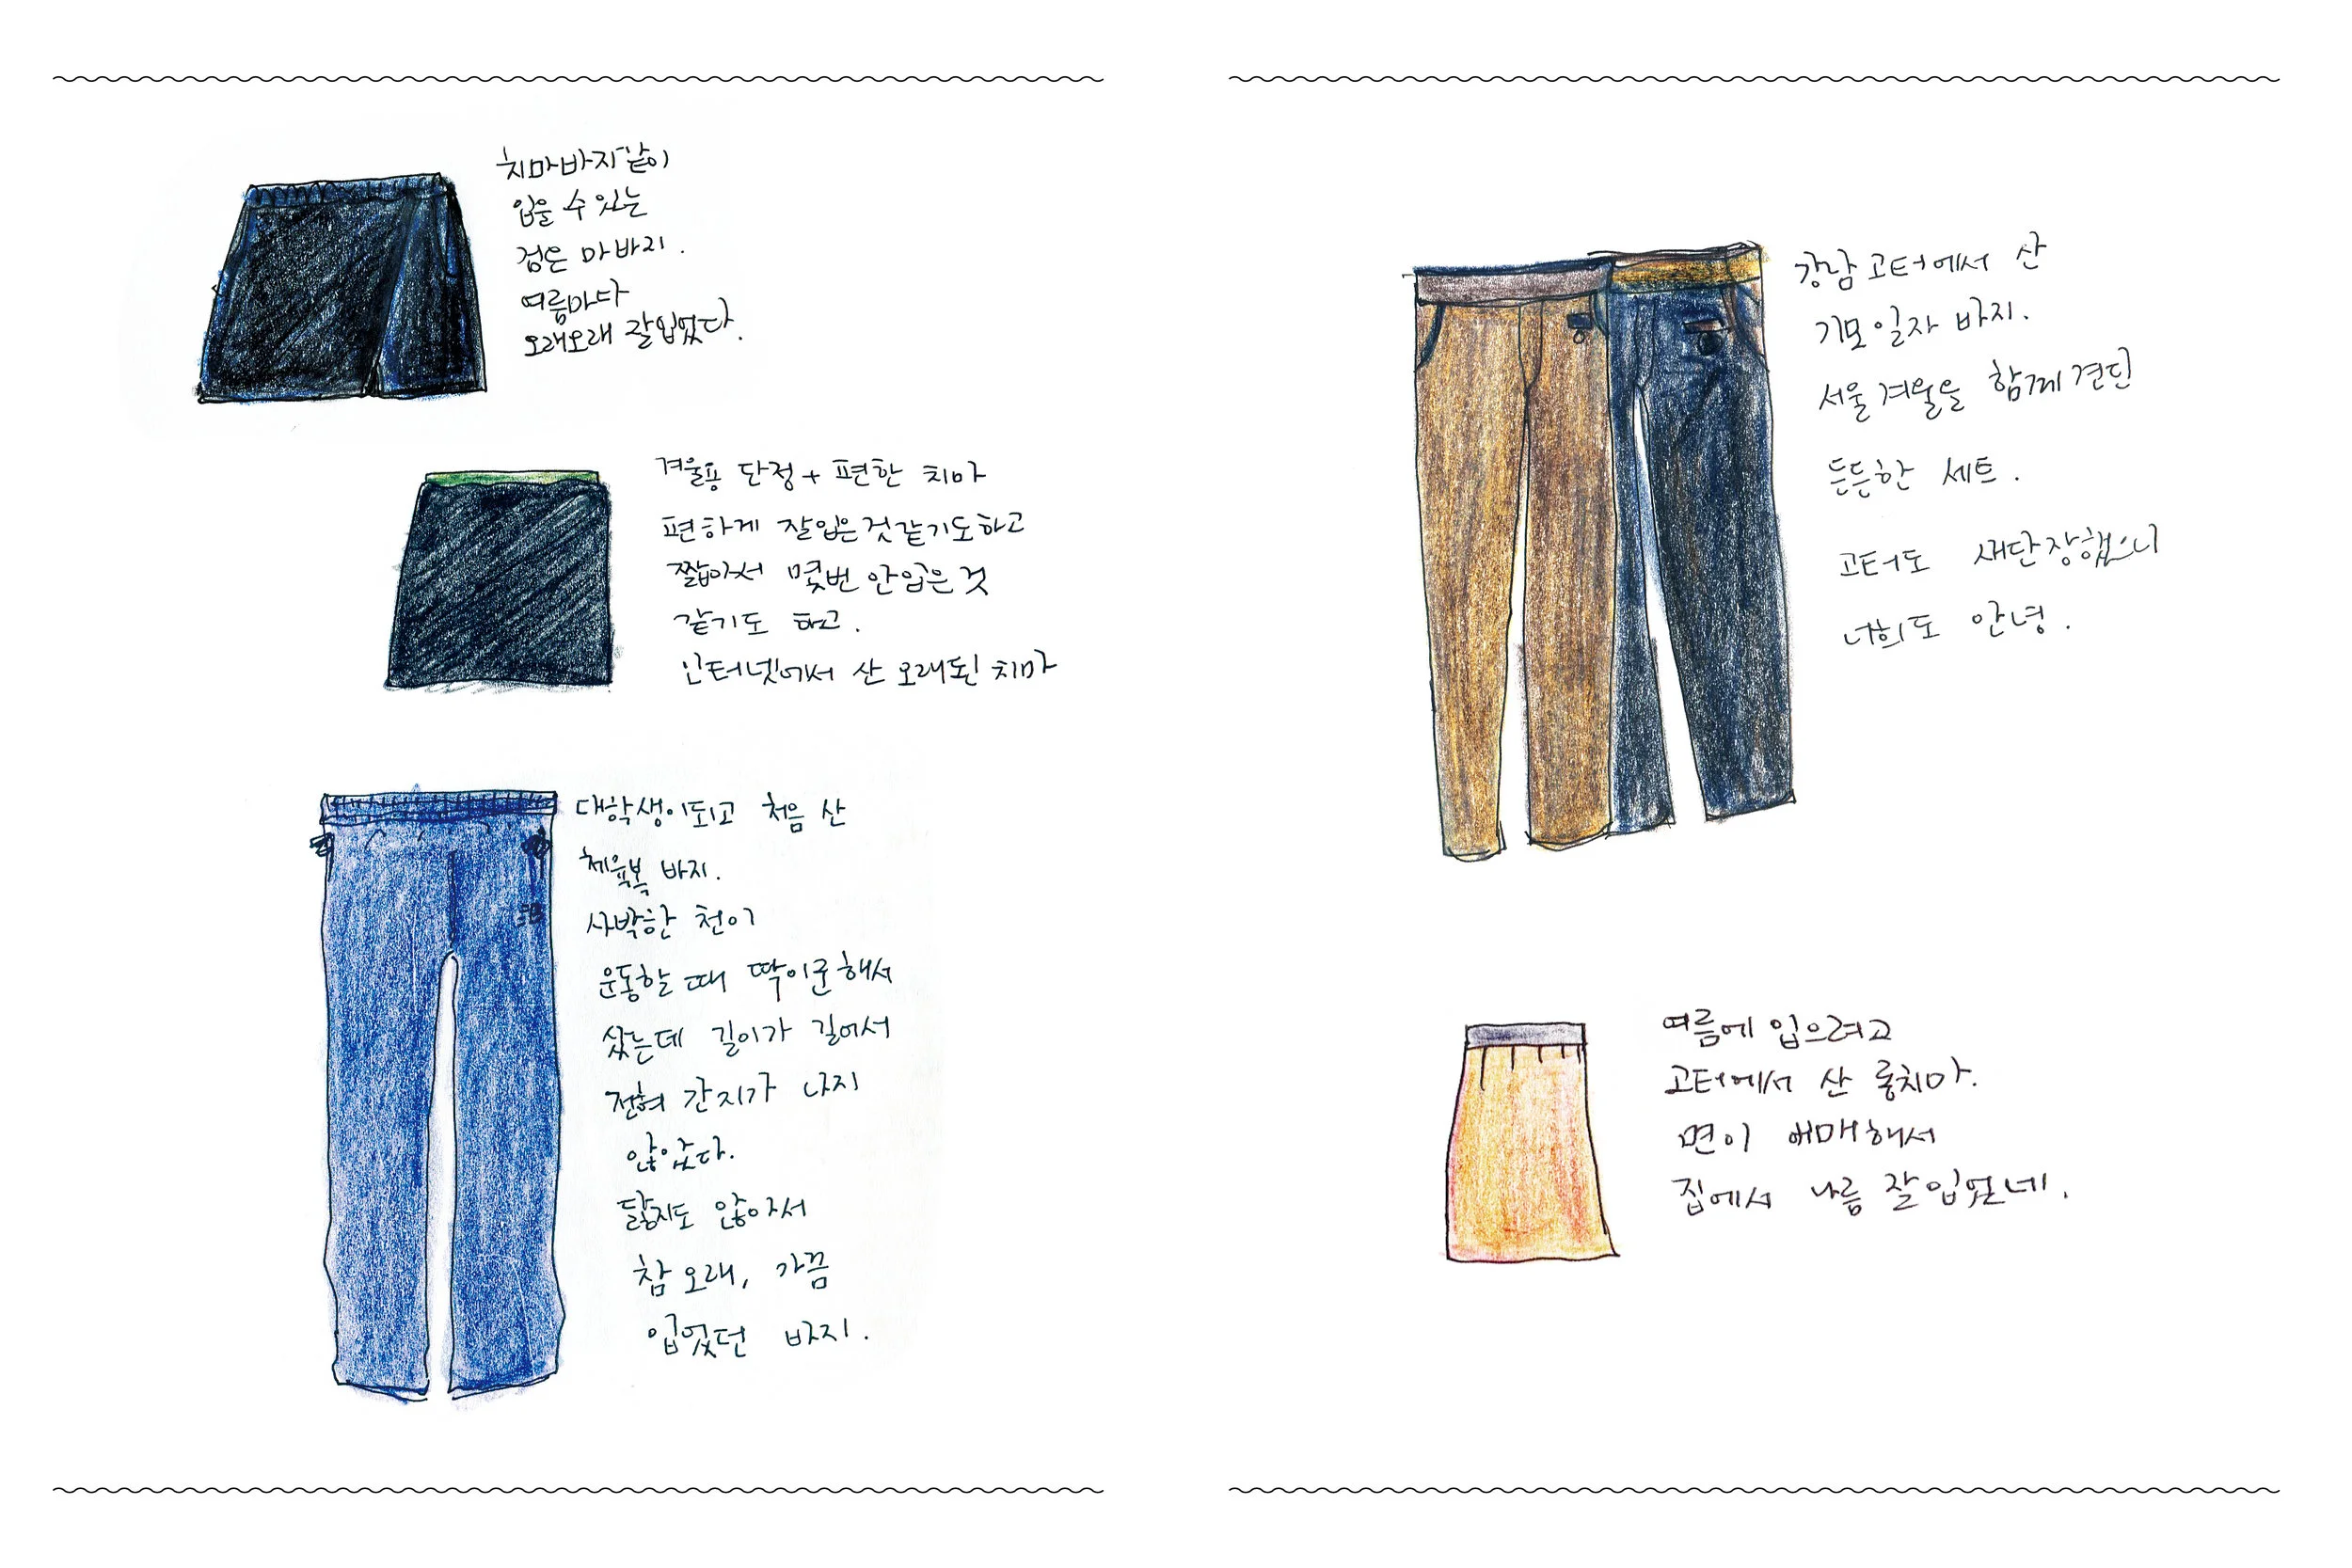 치마바지같이
입을 수 있는
검은 마 바지.
여름마다
오래오래 잘입었다.
겨울용 단정+편한 치마
편하게 잘입은것같기도하고
짧아서 몇번 안입은 것
같기도 하고.
인터넷에서 산 오래된 치마
대학생이되고 처음 산
체육복 바지.
사박한 천이
운동할 때 딱이긴해서
샀는데 길이가 길어서
전혀 간지가 나지
않았다.
닳지도 않아서
참 오래, 가끔
입었던 바지.
강남 고터에서 산
기모 일자 바지.
서울 겨울을 함께 견딘
든든한 세트.
고터도 새단장했으니
너희도 안녕.
여름에 입으려고
고터에서 산 롱치마.
면이 애매해서
집에서 나름 잘입었네.